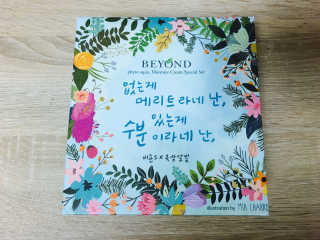 BEYOND
phyto aqua, Moisture Cream Special Set
없는게
메리트라네 난,
있는게
수분이라네 난,
비욘드 X 옥상달빛
illustration by MIA CHARRO